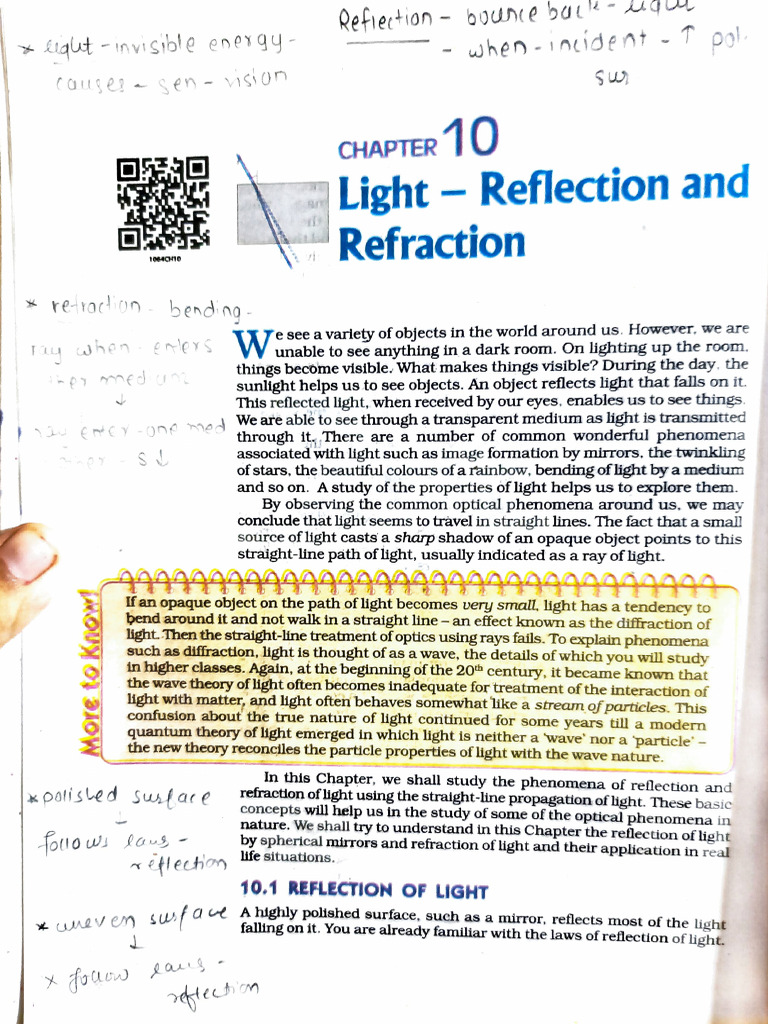 Reflection - bounce back - light
* light - invisible energy -
- when - incident - ↑ pol.
causes - sen - vision
sur
CHAPTER 10
Light – Reflection and
Refraction
1064CH10
* refraction - bending -
ray when enters
med
↓
enter - one med
- s↓
We see a variety of objects in the world around us. However, we are
unable to see anything in a dark room. On lighting up the room,
things become visible. What makes things visible? During the day, the
sunlight helps us to see objects. An object reflects light that falls on it.
This reflected light, when received by our eyes, enables us to see things.
We are able to see through a transparent medium as light is transmitted
through it. There are a number of common wonderful phenomena
associated with light such as image formation by mirrors, the twinkling
of stars, the beautiful colours of a rainbow, bending of light by a medium
and so on. A study of the properties of light helps us to explore them.
By observing the common optical phenomena around us, we may
conclude that light seems to travel in straight lines. The fact that a small
source of light casts a sharp shadow of an opaque object points to this
straight-line path of light, usually indicated as a ray of light.
More to Know!
If an opaque object on the path of light becomes very small, light has a tendency to
bend around it and not walk in a straight line – an effect known as the diffraction of
light. Then the straight-line treatment of optics using rays fails. To explain phenomena
such as diffraction, light is thought of as a wave, the details of which you will study
in higher classes. Again, at the beginning of the 20th century, it became known that
the wave theory of light often becomes inadequate for treatment of the interaction of
light with matter, and light often behaves somewhat like a stream of particles. This
confusion about the true nature of light continued for some years till a modern
quantum theory of light emerged in which light is neither a 'wave' nor a 'particle' –
the new theory reconciles the particle properties of light with the wave nature.
In this Chapter, we shall study the phenomena of reflection and
refraction of light using the straight-line propagation of light. These basic
concepts will help us in the study of some of the optical phenomena in
nature. We shall try to understand in this Chapter the reflection of light
by spherical mirrors and refraction of light and their application in real
life situations.
* polished surface
↓
follows laws -
reflection
10.1 REFLECTION OF LIGHT
A highly polished surface, such as a mirror, reflects most of the light
falling on it. You are already familiar with the laws of reflection of light.
* uneven surface
↓
× follow laws -
reflection